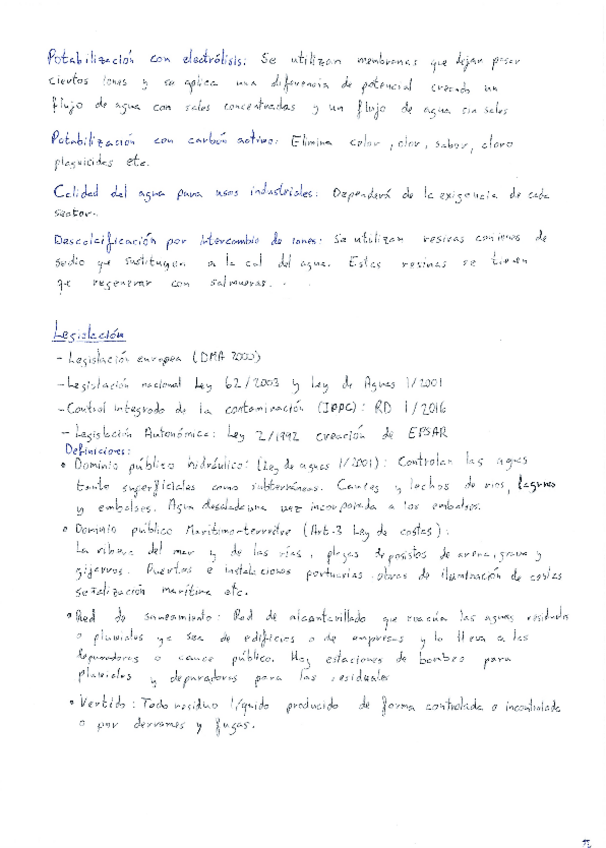 Potabilización con electrólisis: Se utilizan membranas que dejan pasar
ciertos iones y se aplica una diferencia de potencial creando un
flujo de agua con sales concentradas y un flujo de agua sin sales
Potabilización con carbón activo: Elimina color, olor, sabor, cloro
plaguicidas etc.
Calidad del agua para usos industriales: Dependerá de la exigencia de cada
sector.
Descalcificación por intercambio de iones: Se utilizan resinas de
sodio que sustituyen a la cal del agua. Estas resinas se tienen
que regenerar con salmueras.
Legislación
- Legislación europea (DMA 2000)
- Legislación nacional Ley 62/2003 y Ley de Aguas 1/2001
- Control integrado de la contaminación (IPPC): RD 1/2016
- Legislación Autonómica: Ley 2/1992 creación de EPSAR
Definiciones:
• Dominio público hidráulico: (Ley de aguas 1/2001): Controlan las aguas
tanto superficiales como subterráneas. Cauces y lechos de ríos, lagunas
y embalses. Agua desalada una vez incorporada a los embalses.
• Dominio público Marítimo-terrestre (Art. 3 Ley de costas):
La ribera del mar y de las rías, playas depósitos de arena, grava y
guijarros. Puertos e instalaciones portuarias obras de iluminación de costas
señalización marítima etc.
• Red de saneamiento: Red de alcantarillado que evacúa las aguas residuales
o pluviales ya sea de edificios o de empresas y lo lleva a las
depuradoras o cauce público. Hay estaciones de bombeo para
pluviales y depuradoras para las residuales
• Vertido: Todo residuo líquido producido de forma controlada o incontrolada
o por derrames y fugas.